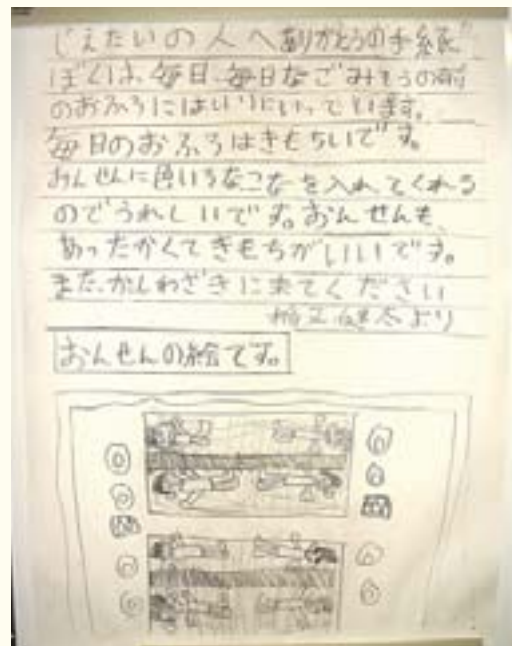 じえたいの人へありがとうの手紙
ぼくは、毎日、毎日なごみそうの前
のおふろにはいりにいっています。
毎日のおふろはきもちいです。
おんせんに色いろなこなを入れてくれる
のでうれしいです。おんせんも、
あったかくてきもちがいいです。
また、かしわざきに来てください
より
おんせんの絵です。